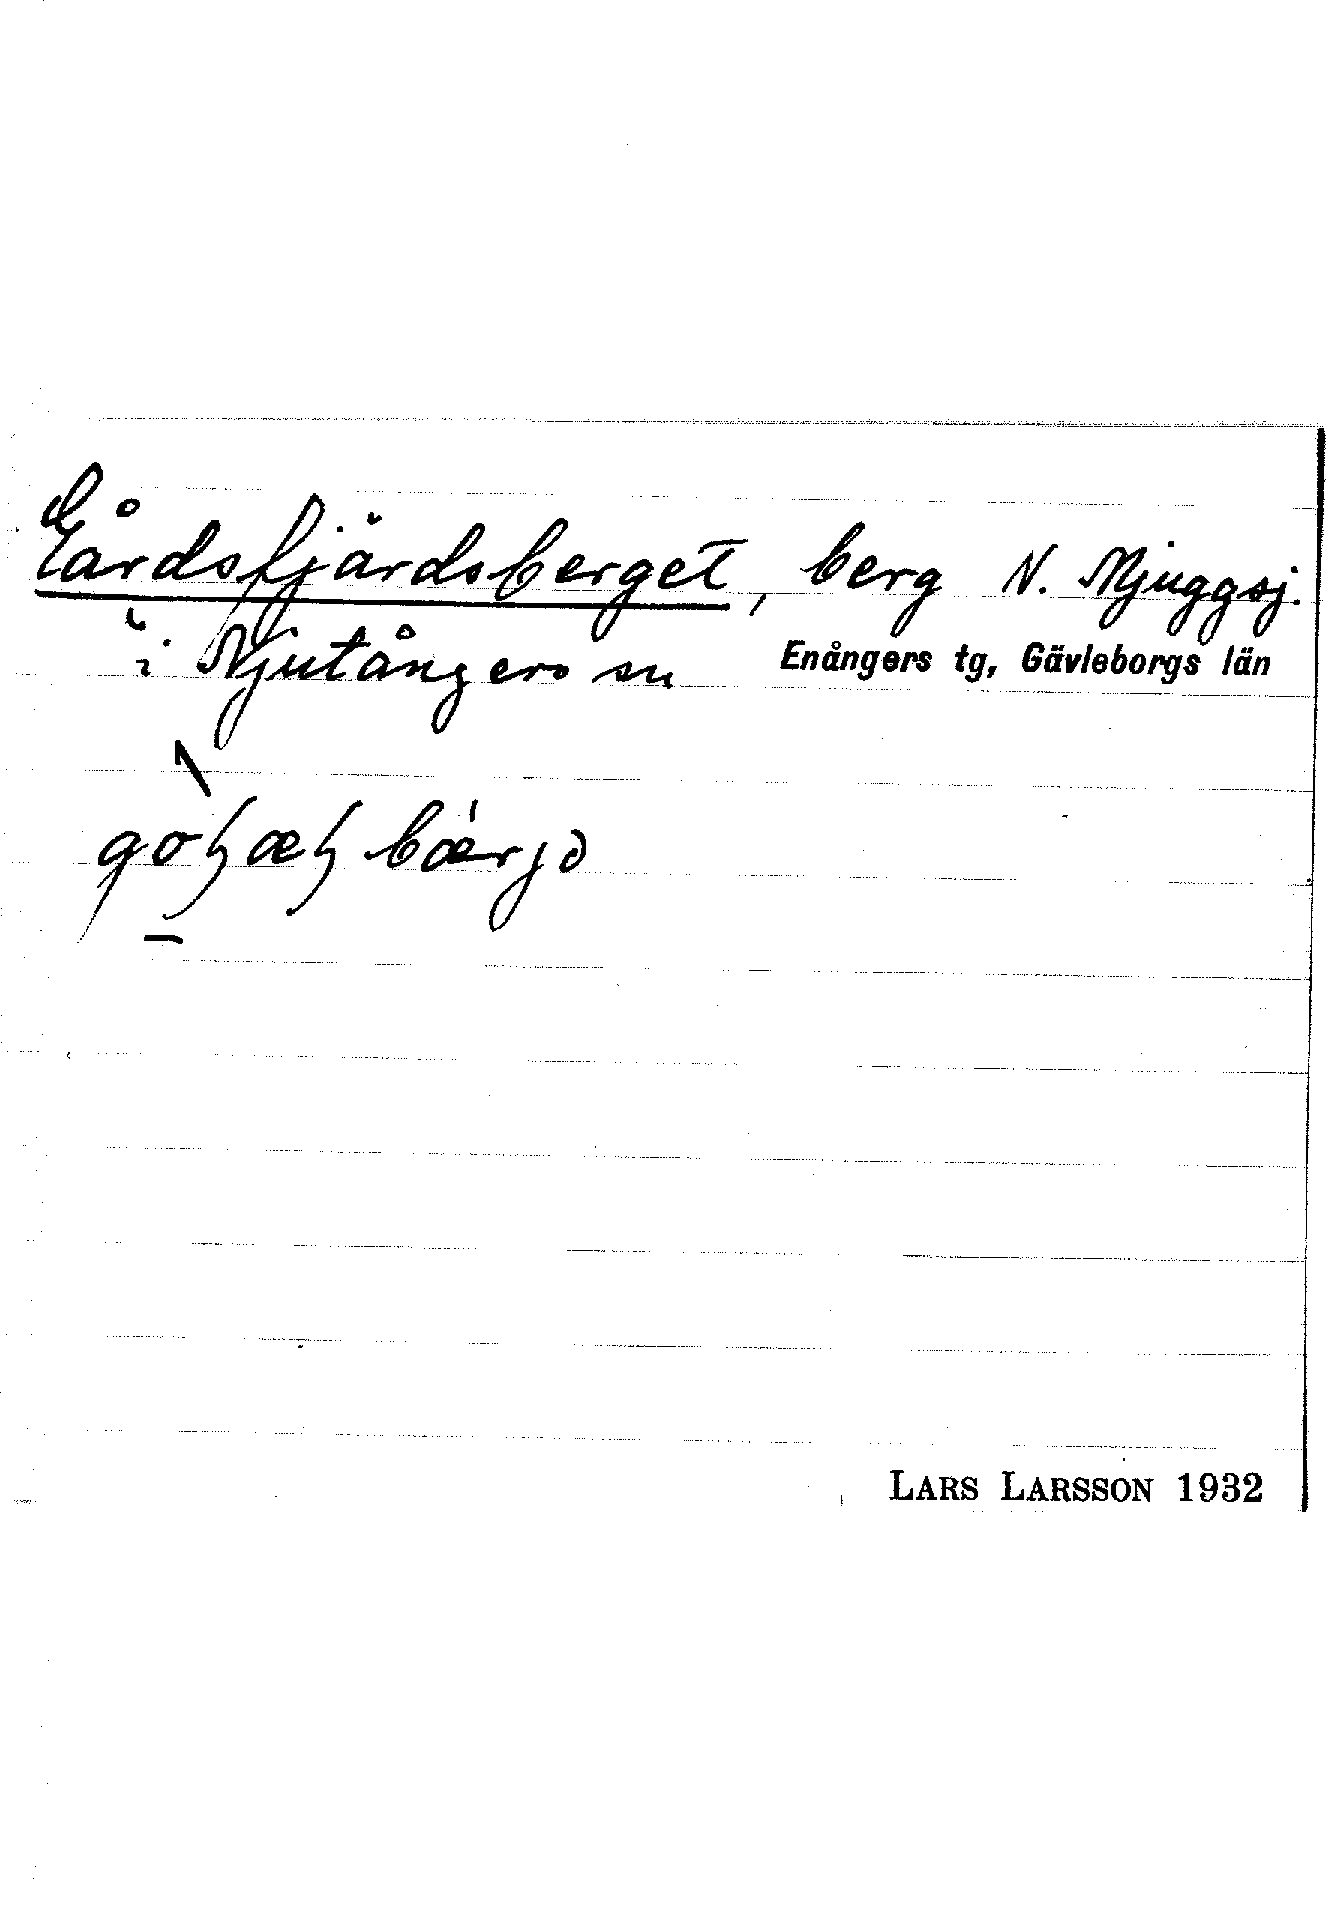 Gårdsfjärdsberget, berg N. Mjuggsj.
i Njutångers sn Enångers tg, Gävleborgs län
LARS LARSSON 1932